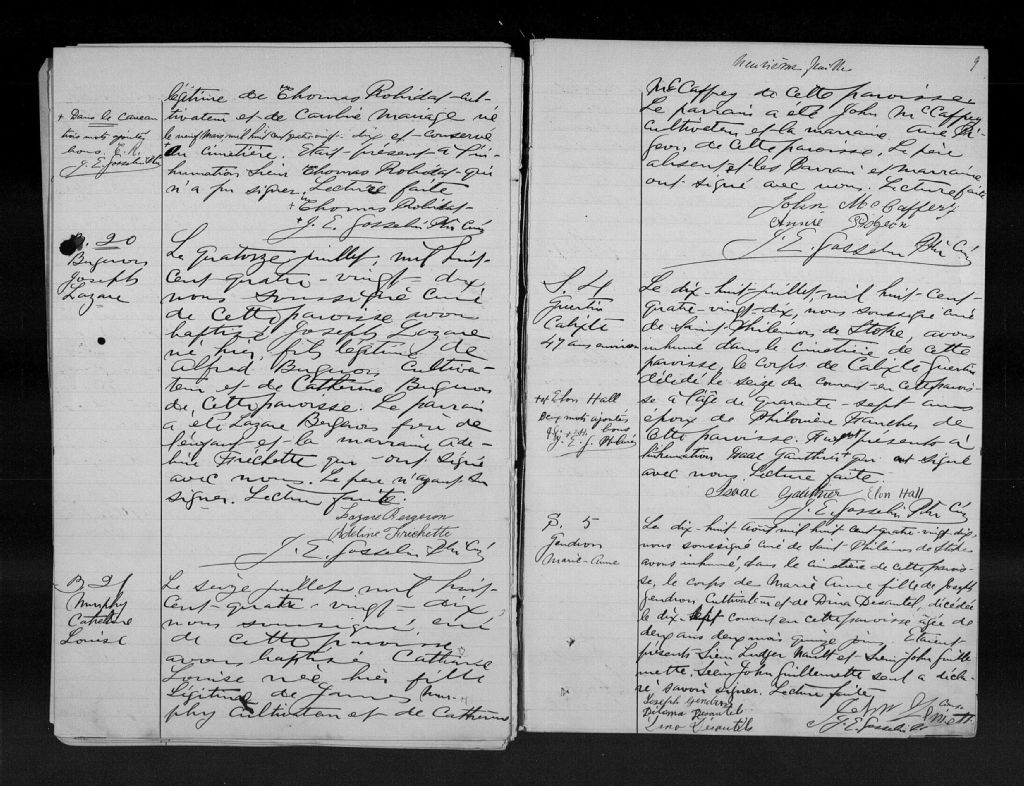 légitime de Thomas Robidas cul-
tivateur et de Caroline Manage né
le neuf Mars mil huit cent quatre-vingt-dix et conservé
+ au cimetière. Etait présent à l'in-
humation Sieur Thomas Robidas qui
n'a pu signer. Lecture faite
Thomas Robidas
J. E. Gosselin Ptre Curé
+ Dans le caveau
trois mots ajoutés
bons. T. R.
J. E. Gosselin Ptre
B. 20
Bergeron
Joseph
Lazare
Le quatorze juillet, mil huit-
cent-quatre-vingt-dix,
nous soussigné curé
de cette paroisse avons
baptisé Joseph Lazare
né hier, fils légitime de
Alfred Bergeron Cultiva-
teur et de Catherine Bergeron
de cette paroisse. Le parrain
a été Lazare Bergeron frère de
l'enfant et la marraine Ade-
line Fréchette qui ont signé
avec nous. Le père n'ayant su
signer. Lecture faite.
Lazare Bergeron
Adeline Frechette
J. E. Gosselin Ptre Curé
B 21
Murphy
Catherine
Louise
Le seize juillet mil huit-
cent-quatre-vingt-dix
nous soussigné, curé
de cette paroisse
avons baptisé Catherine
Louise née hier fille
légitime de James Mur-
phy Cultivateur et de Catherine
Neuvième feuille
9
McCaffrey de cette paroisse
Le parrain a été John McCaffrey
Cultivateur et la marraine Anne Pi-
geon, de cette paroisse. Le père
absent et les Parrain et marraine
ont signé avec nous. Lecture faite
John McCaffery
Annie Pidgeon
J. E. Gosselin Ptre Curé
S. 4
Guertin
Calixte
47 ans environ
Le dix-huit juillet, mil huit-cent-
quatre-vingt-dix, nous soussigné curé
de Saint Philémon de Stoke, avons
inhumé dans le cimetière de cette
paroisse, le corps de Calixte Guertin
décédé le seize du courant en cette parois-
se à l'âge de quarante-sept ans
époux de Philomène Franches de
cette paroisse. Furent présents à
l'inhumation Isaac Gauthier + qui ont signé
avec nous. Lecture faite.
Isaac Gauthier Elon Hall
J. E. Gosselin Ptre Curé
+ et Elon Hall
Deux mots ajoutés
bons
S. 5
Gendron
Marie-Anne
Le dix-huit août mil huit cent quatre-vingt dix
nous soussigné curé de Saint Philémon de Stoke
avons inhumé, dans le cimetière de cette parois-
se, le corps de Marie Anne fille de Joseph
Gendron Cultivateur et de Dina Désautel, décédée
le dix-sept courant en cette paroisse âgée de
deux ans deux mois quinze jours. Etaient
présents Sieur Ludger Nault et Sieur John Guille
mette. Sieur John Guillemette seul a décla-
ré, savoir signer. Lecture faite
Joseph Gendron
J. E. Gosselin